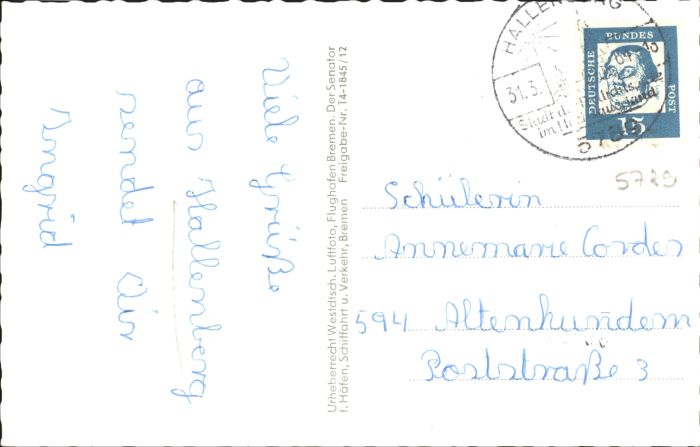 Viele Grüße
aus Hallenberg
sendet Dir
Ingrid
Urheberrecht Westdtsch. Luftfoto, Flughafen Bremen. Der Senator
f. Häfen, Schiffahrt u. Verkehr, Bremen Freigabe-Nr. T4-1845/12
HALLENBERG
31.3.
5789
DEUTSCHE
BUNDES
POST
15
5789
Schülerin
Annemarie Cordes
594 Altenhundem
Poststraße 3